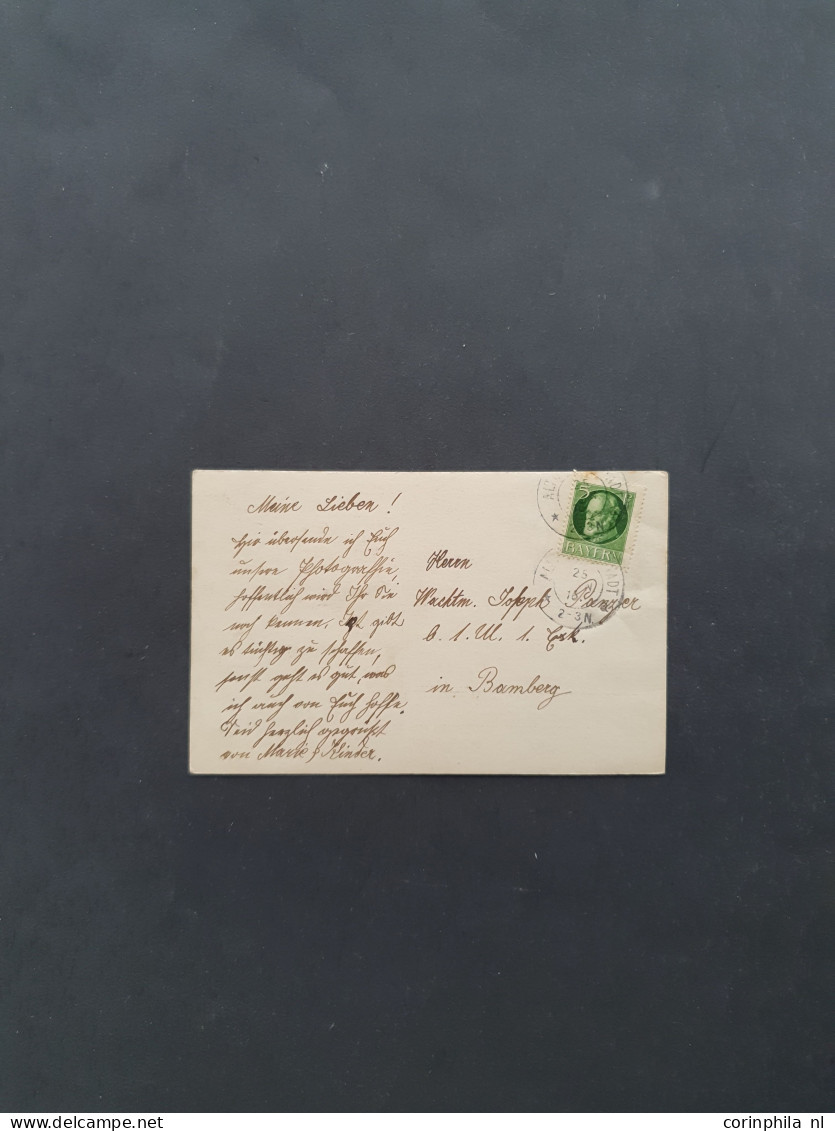 Meine Lieben!
Hier übersende ich Euch
unsere Photographie,
hoffentlich wird Ihr Sie
noch kennen. Jetzt gibt
es tüchtig zu schaffen,
sonst geht es gut, was
ich auch von Euch hoffe.
Seid herzlich gegrüßt
von Marie & Kinder.
5
BAYERN
25
2-3N.
Herrn
Wachtm. Joseph Panzer
b. 1. Ul. 1. Esk.
in Bamberg
corinphila nl